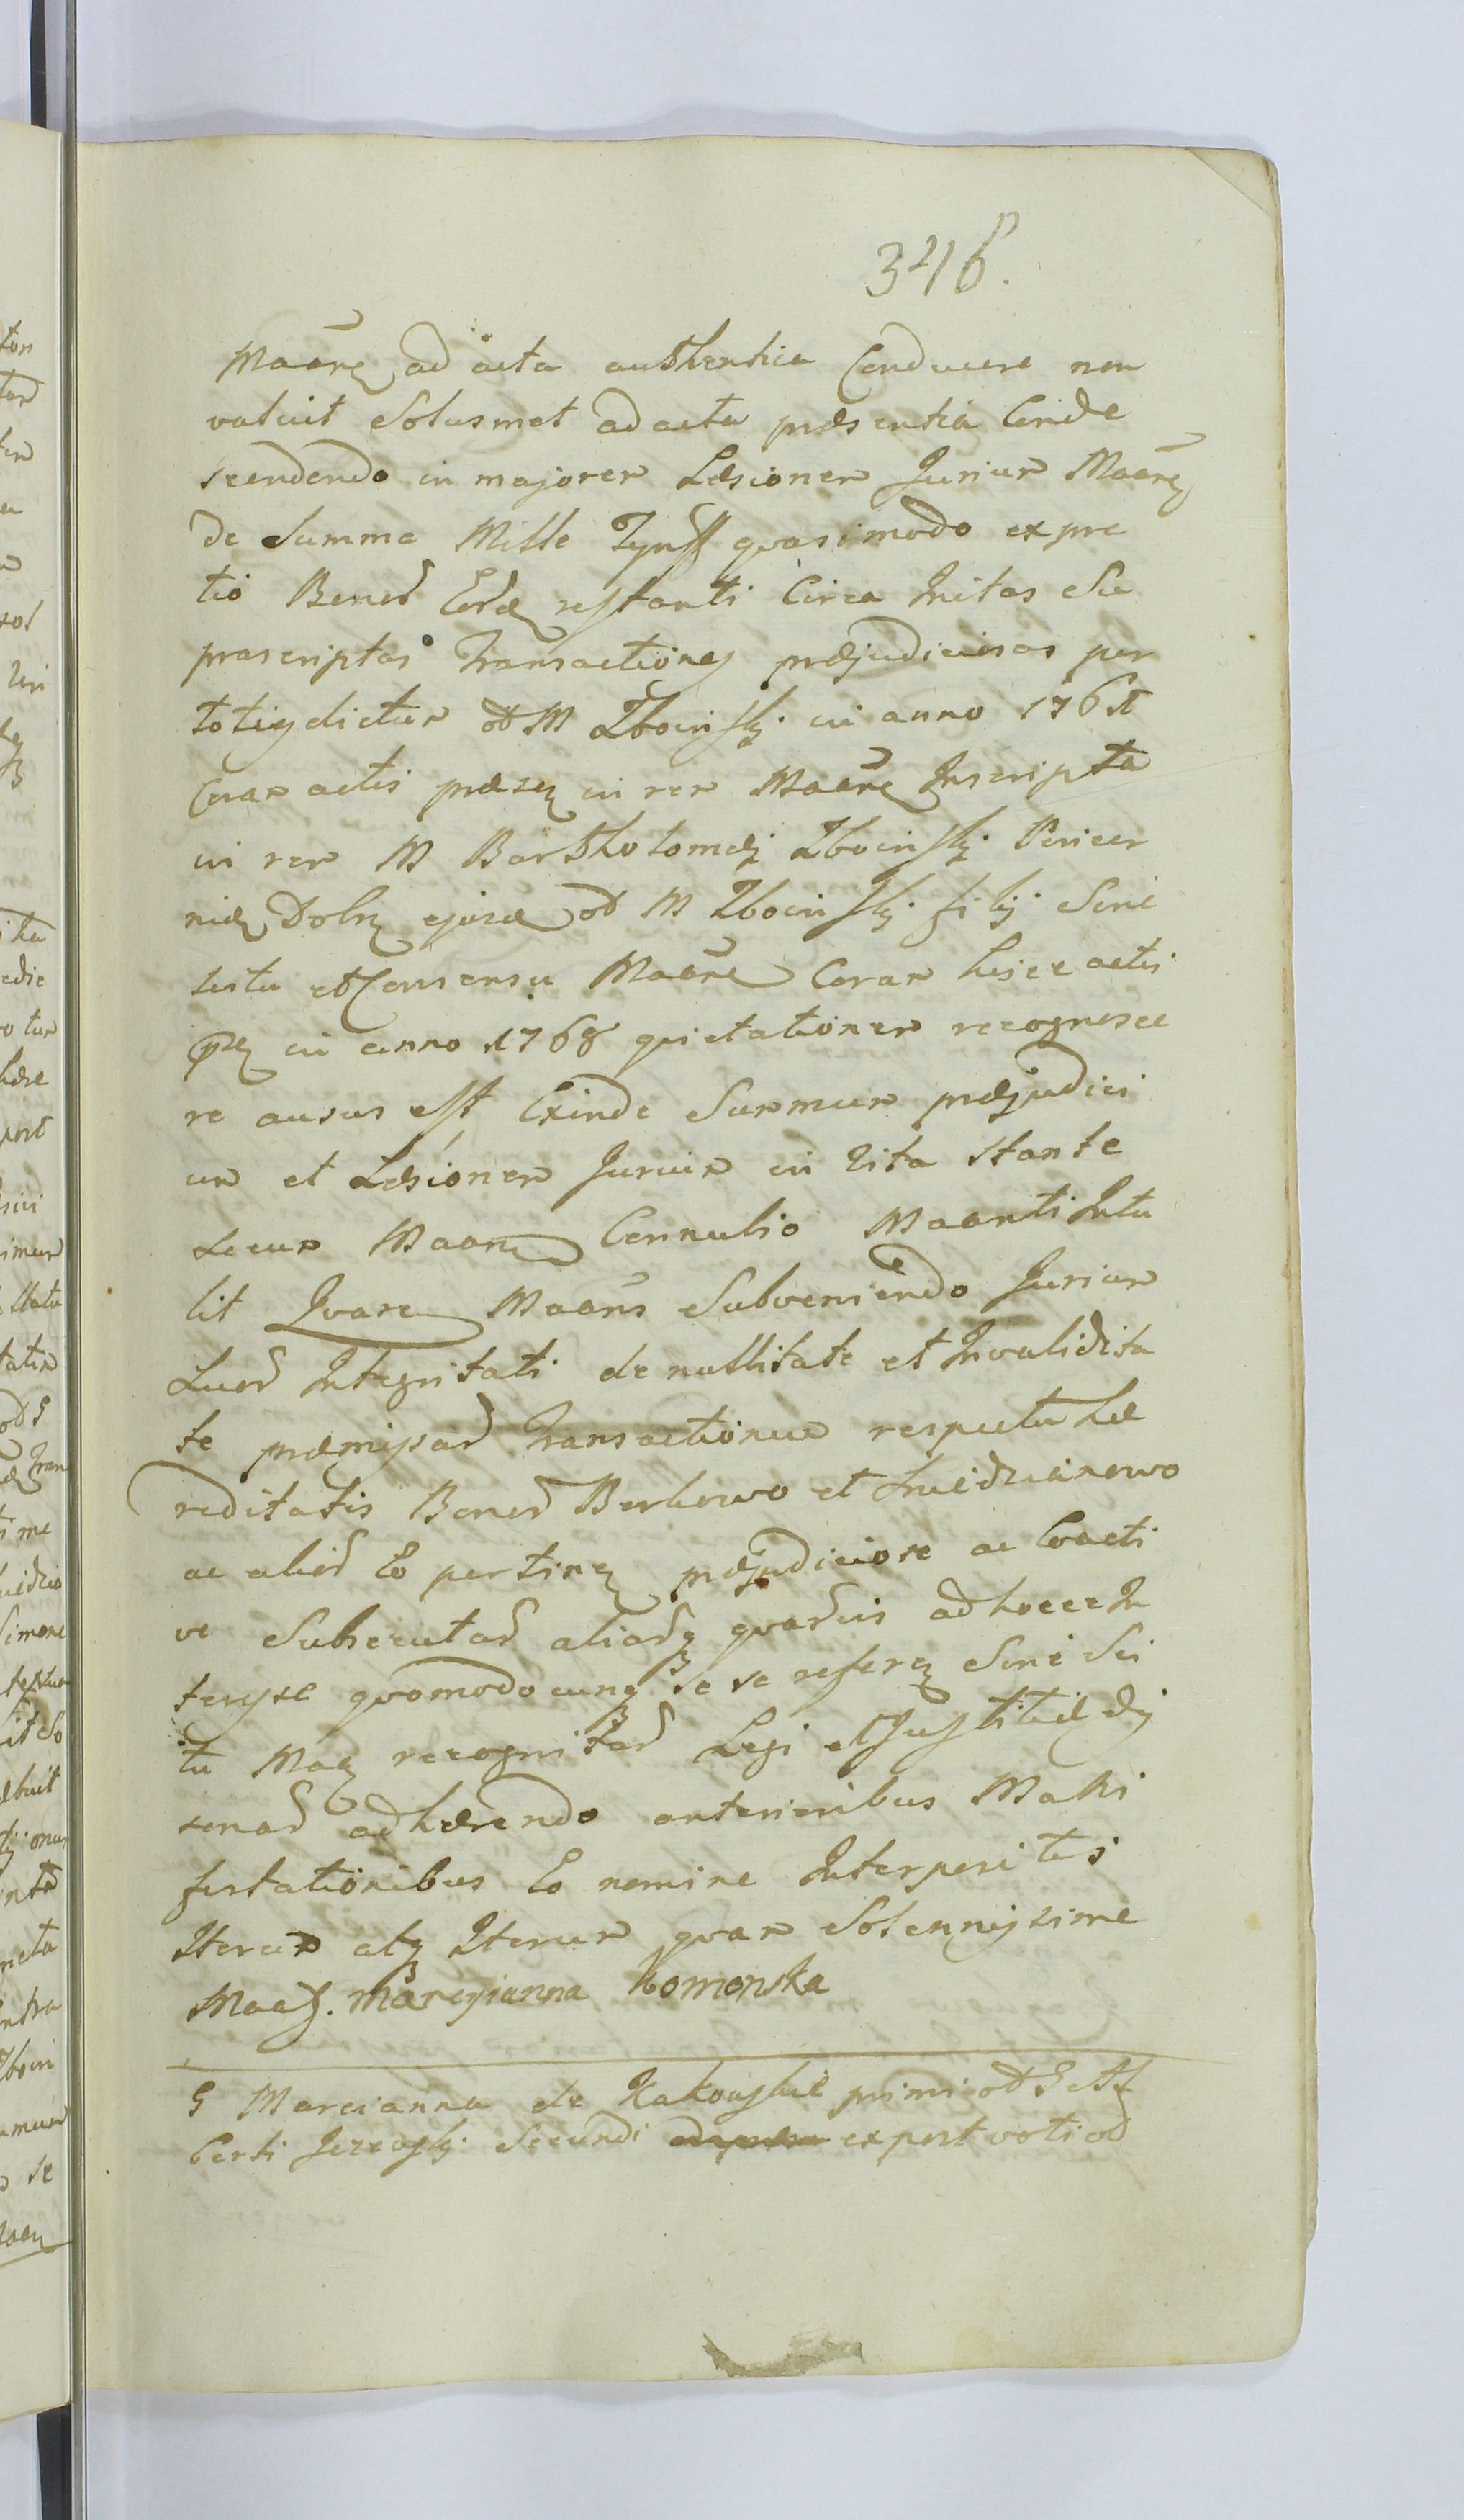 346.
Maare ad acta authentica Conducere non
valuit Solusmet ad acta præsentia Conde
scendendo in majorem Læsionem Jurium Maare
de Summa Mille Tynff quasimodo ex pre
tio Bonor restanti Circa Initas Su
prascriptas Transactiones præjudiciosas per
toties dictum M Zboinski in anno 176
Coram actis præsen in rem Maare Inscripta
in rem M Bartholomæi Zboinski Pincer
niæ Dobrz M Zboinski filij Sine
scitu et Consensu Maare Coram hisce actis
in anno 1768 quietationem recognosce
re ausus est Exinde Summum præjudici
um et Læsionem Jurium in Vita Stante
secum Maare Connubio Maanti Intu
lit Quare Maans Subveniendo Jurium
Suor Integritati de nullitate et Invalidita
te præmissar Transactionum respectu hæ
reditatis Bonor Borkowo et
ac alior Eo pertinen præjudiciose ac Coacti
ve Subsecutar aliarq quarvis ad hocce In
teresse quomodocunq se se referen Sine Sci
tu Maae recognitar Legi et Justitiæ dis
sonar adhærendo anterioribus Mani
festationibus Eo nomine Interpositis
Iterum atq Iterum quam Solennissime
Maae. Marcyianna Komorska
G Marcianna de Kakowskie primi
berti Jezewski Secundi ex post voti